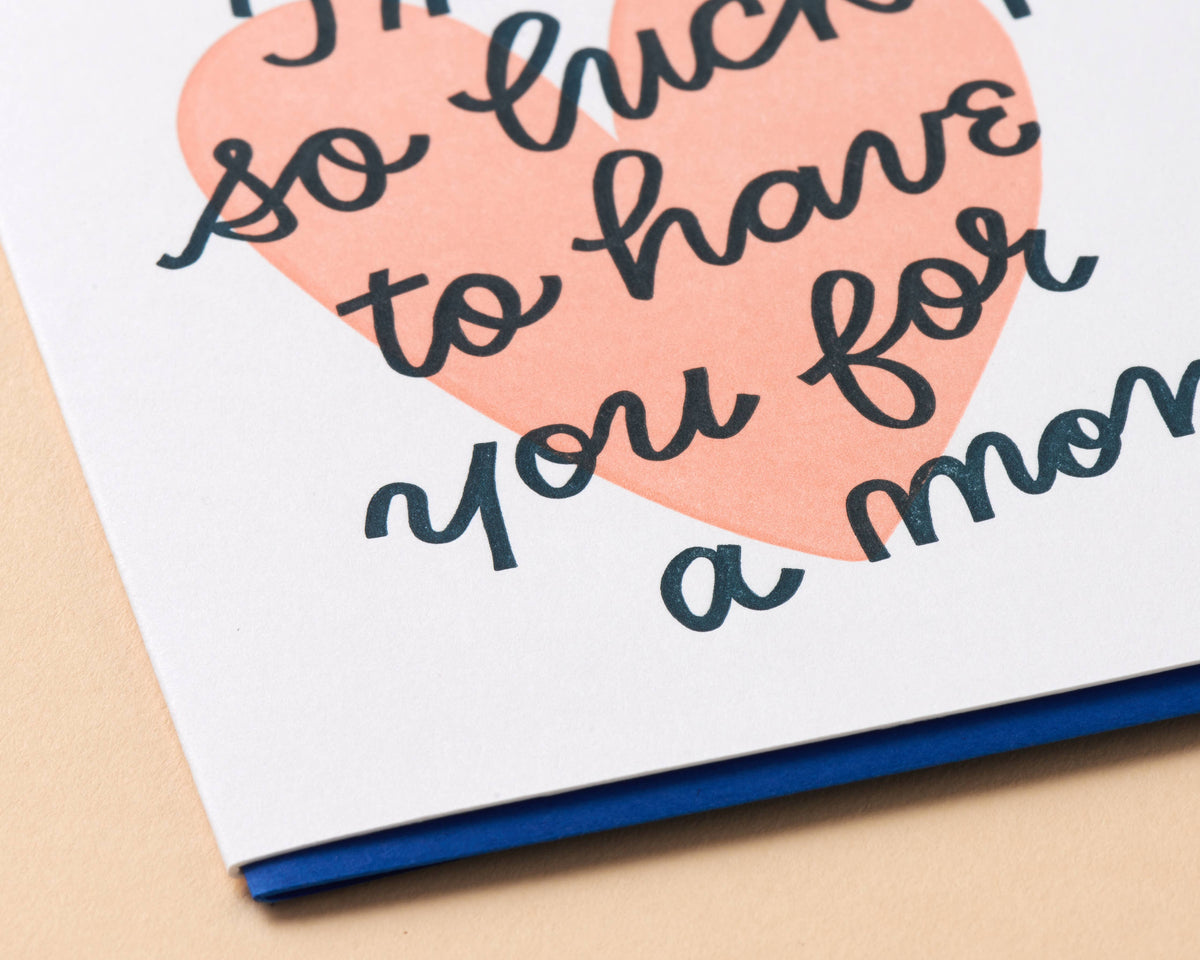 so lucky
to have
you for
a mom